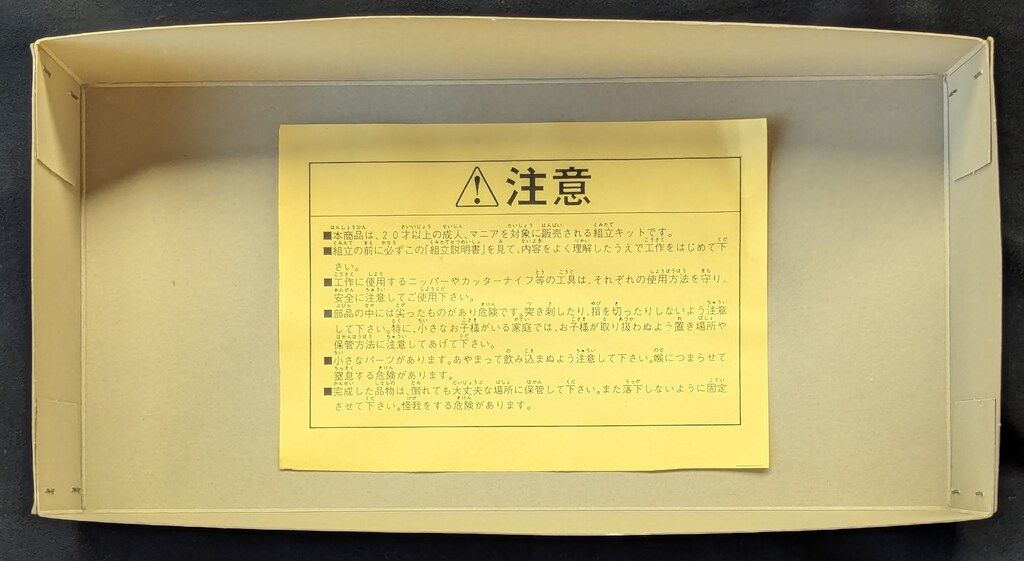 注意
■本商品は、20才以上の成人、マニアを対象に販売される組立キットです。
■組立の前に必ずこの「組立説明書」を見て、内容をよく理解したうえで工作をはじめて下
さい。
■工作に使用するニッパーやカッターナイフ等の工具は、それぞれの使用方法を守り、
安全に注意してご使用下さい。
■部品の中には尖ったものがあり危険です。突き刺したり、指を切ったりしないよう注意
して下さい。特に、小さなお子様がいる家庭では、お子様が取り扱わぬよう置き場所や
保管方法に注意してあげて下さい。
■小さなパーツがあります。あやまって飲み込まぬよう注意して下さい。喉につまらせて
窒息する危険があります。
■完成した品物は、倒れても大丈夫な場所に保管して下さい。また落下しないように固定
させて下さい。怪我をする危険があります。